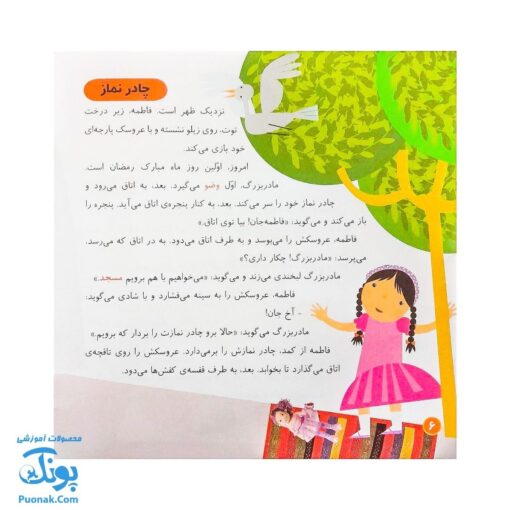 چادر نماز
نزدیک ظهر است. فاطمه، زیر درخت
توت، روی زیلو نشسته و با عروسک پارچه‌ای
خود بازی می‌کند.
امروز، اوّلین روز ماه مبارک رمضان است.
مادربزرگ، اوّل وضو می‌گیرد. بعد، به اتاق می‌رود و
چادر نماز خود را سر می‌کند. بعد، به کنار پنجره‌ی اتاق می‌آید. پنجره را
باز می‌کند و می‌گوید: «فاطمه‌جان! بیا توی اتاق.»
فاطمه، عروسکش را می‌بوسد و به طرف اتاق می‌دود. به در اتاق که می‌رسد،
می‌پرسد: «مادربزرگ! چکار داری؟»
مادربزرگ لبخندی می‌زند و می‌گوید: «می‌خواهیم با هم برویم مسجد.»
فاطمه، عروسکش را به سینه می‌فشارد و با شادی می‌گوید:
- آخ جان!
مادربزرگ می‌گوید: «حالا برو چادر نمازت را بردار که برویم.»
فاطمه از کمد، چادر نمازش را برمی‌دارد. عروسکش را روی تاقچه‌ی
اتاق می‌گذارد تا بخوابد. بعد، به طرف قفسه‌ی کفش‌ها می‌دود.
۶
محصولات آموزشی
پونک
Puonak.Com